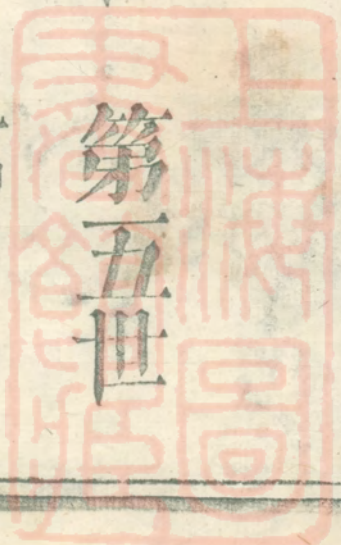 第五世
上海圖
書館藏